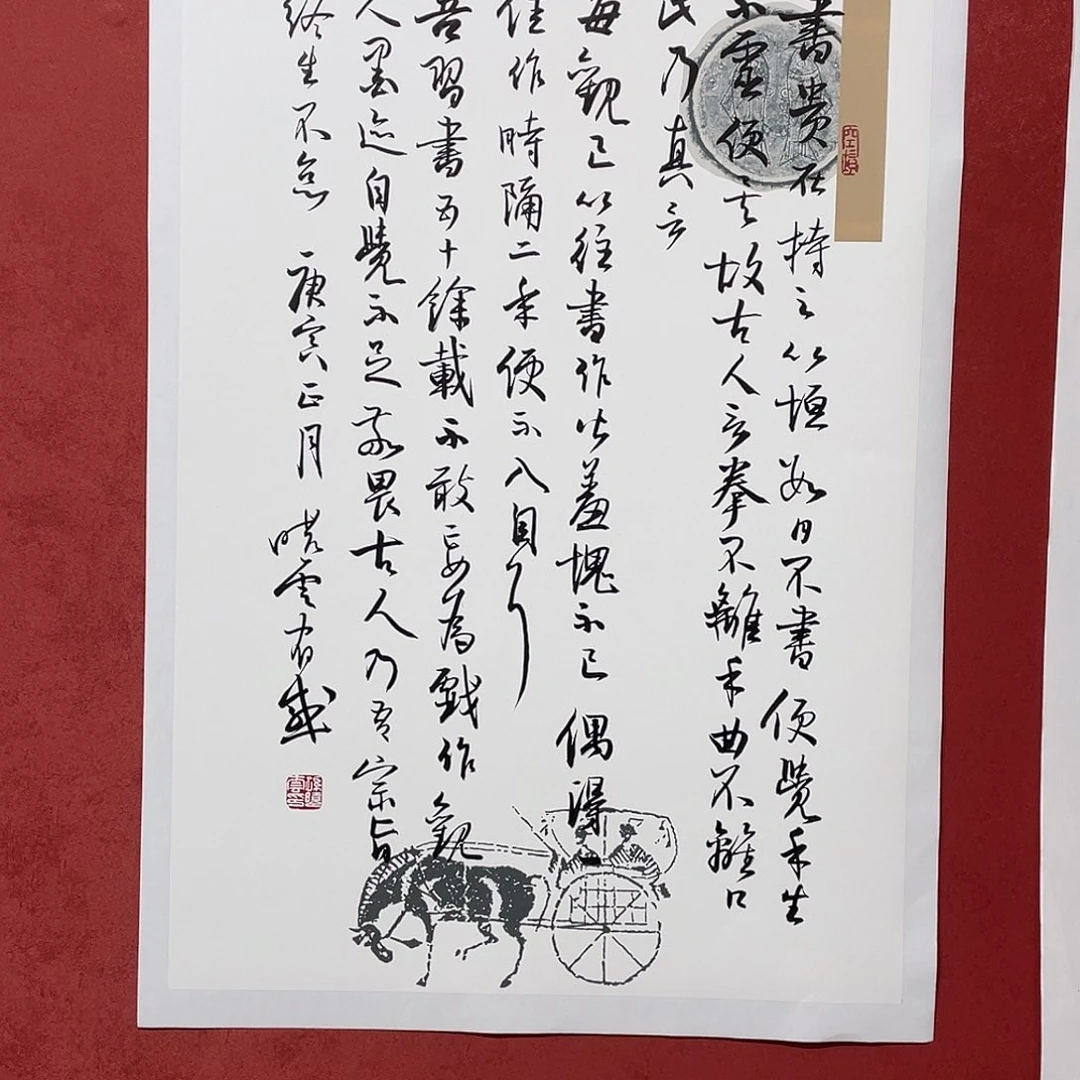 書贵在持之以恒数日不書便覺手生
不靈便也故古人言拳不離手曲不離口
民乃真言
每觀已以往書作皆羞愧不已偶得
佳作時隔二年便不入目了
吾習書五十餘載不敢妄為戲作觀
人墨迹自覺不足敬畏古人乃吾宗旨
终生不怠 庚寅正月 晓雲有感